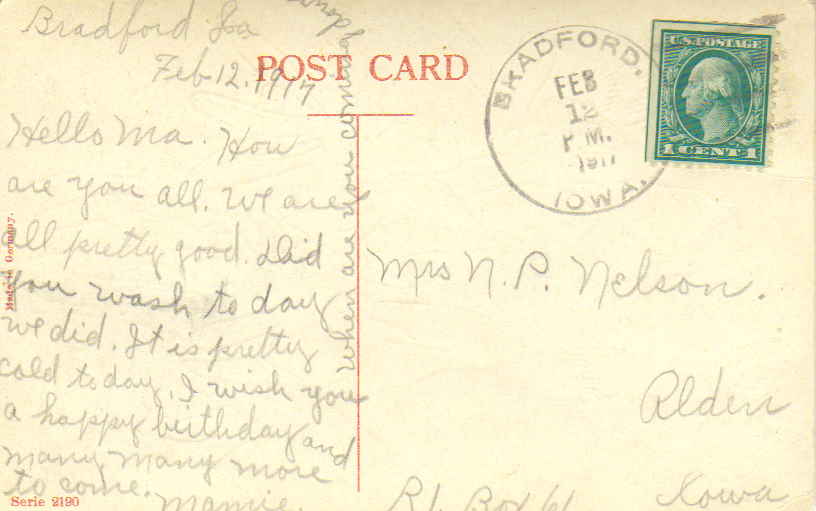 Bradford Ia
Feb 12, 1917
POST CARD
BRADFORD.
FEB
12
P M.
1917
IOWA.
U.S. POSTAGE
1 CENT 1
Hello Ma. How
are you all. We are
all pretty good. Did
you wash to day
we did. It is pretty
cold to day. I wish you
a happy birthday and
many, many more
to come.
Mamie.
when are you coming
down
Mrs N. P. Nelson.
Alden
Iowa
R1. Box 61
Made in Germany.
Serie 2190